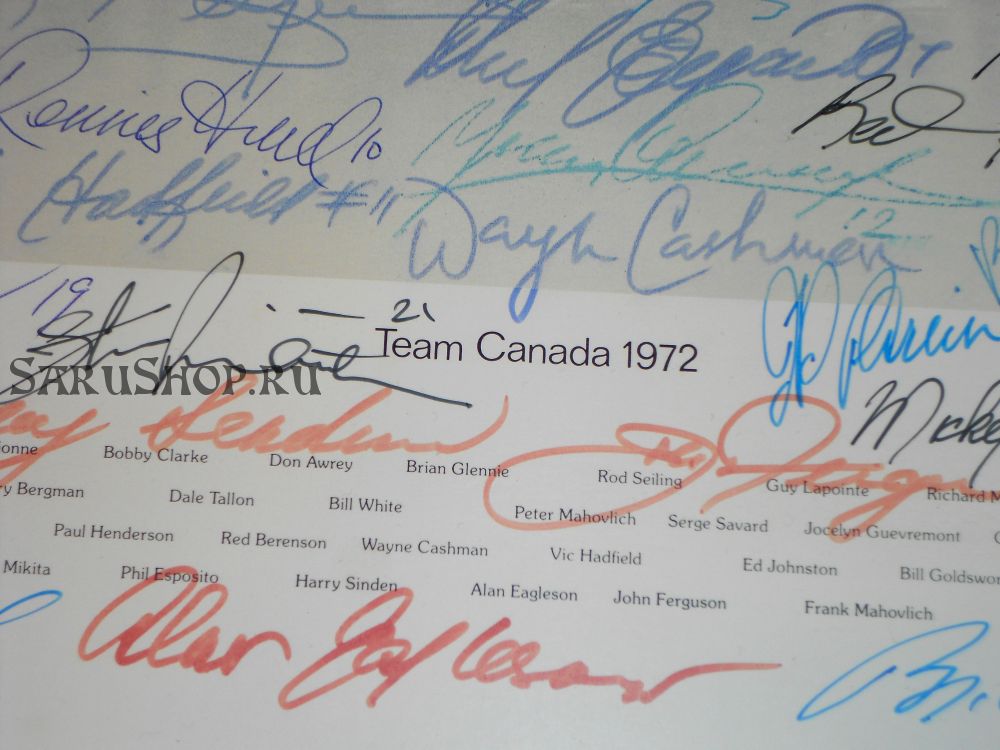 Phil Esposito 7
Dennis Hull 10
Yvan Cournoyer 12
Hadfield #11
Wayne Cashman
19
Stan Mikita 21
Team Canada 1972
SARUSHOP.RU
JP Parise
Mickey
Henderson
ionne Bobby Clarke Don Awrey Brian Glennie Rod Seiling Guy Lapointe Richard M
ry Bergman Dale Tallon Bill White Peter Mahovlich Serge Savard Jocelyn Guevremont
Paul Henderson Red Berenson Wayne Cashman Vic Hadfield Ed Johnston Bill Goldswor
Mikita Phil Esposito Harry Sinden Alan Eagleson John Ferguson Frank Mahovlich
Alan Eagleson